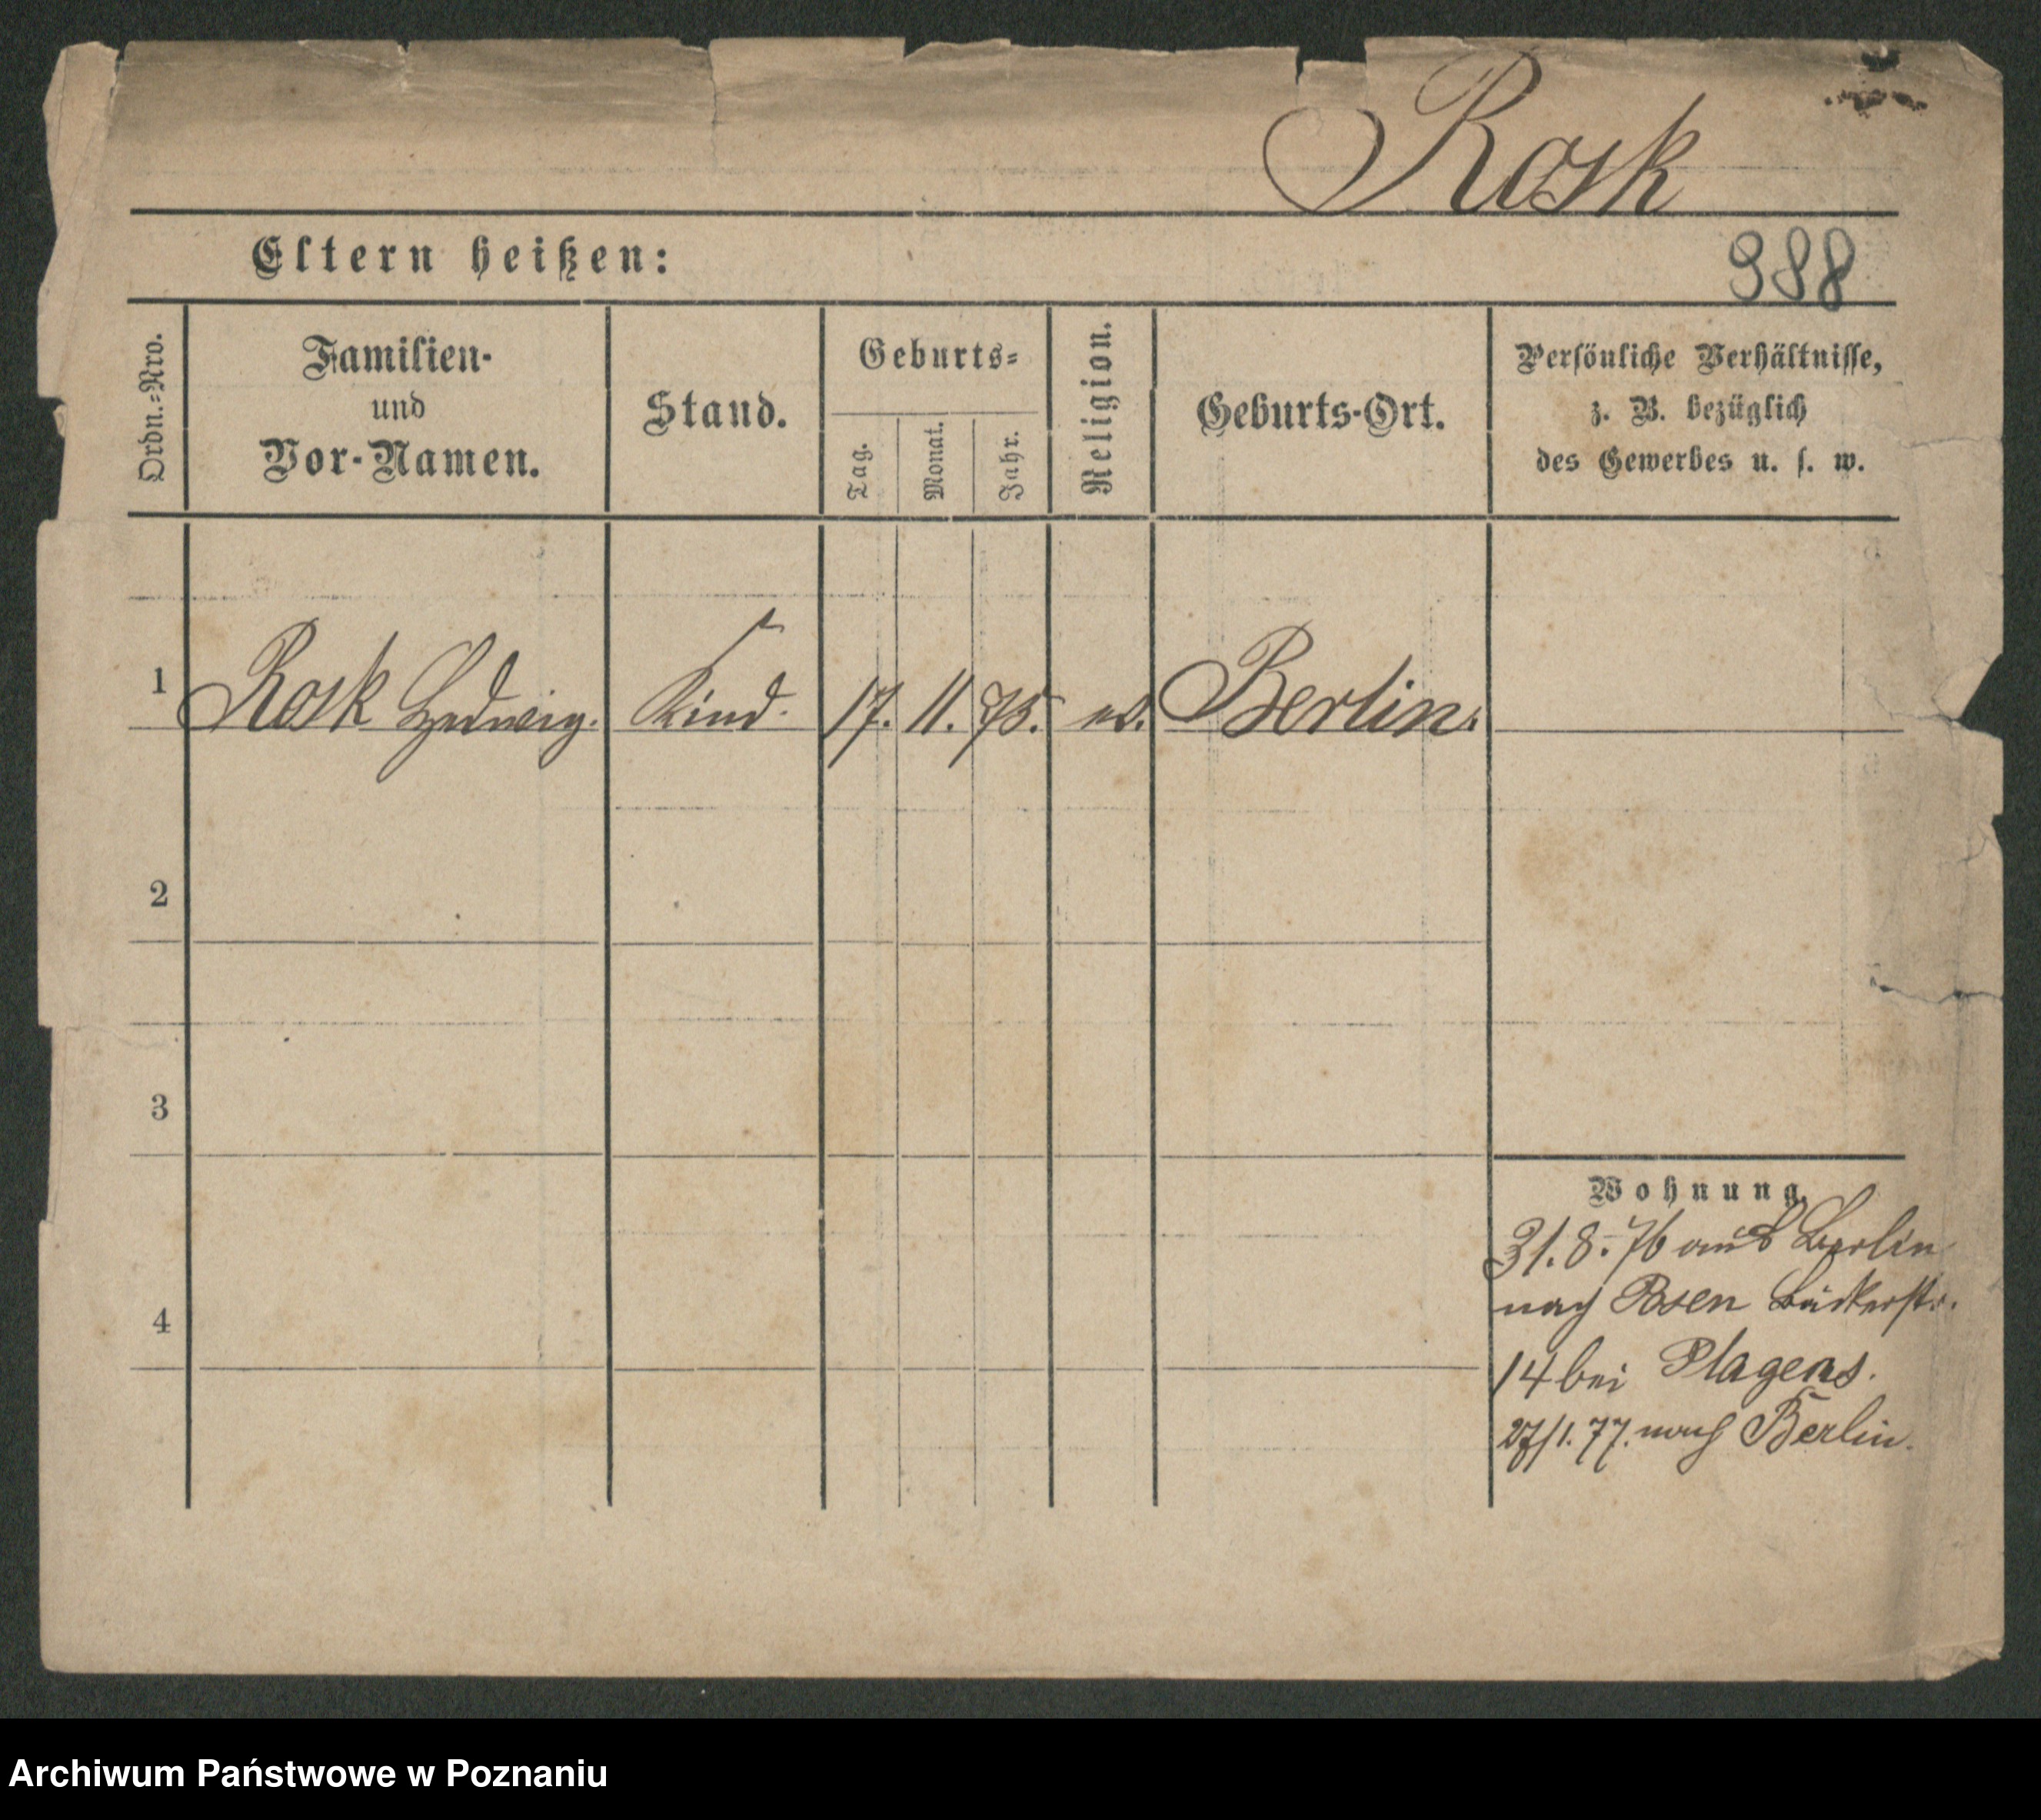 Rosk
Eltern heißen:
988
Ordn.=Nro.
Familien-
und
Vor-Namen.
Stand.
Geburts=
Tag.
Monat.
Jahr.
Religion.
Geburts-Ort.
Persönliche Verhältnisse,
z. B. bezüglich
des Gewerbes u. s. w.
1 Rosk Hedwig. Kind. 17. 11. 75. ev. Berlin.
2
3
4
Wohnung.
31.8.76 aus Berlin
nach Posen Bäckerstr.
14 bei Plagens.
27/1.77. nach Berlin.
Archiwum Państwowe w Poznaniu